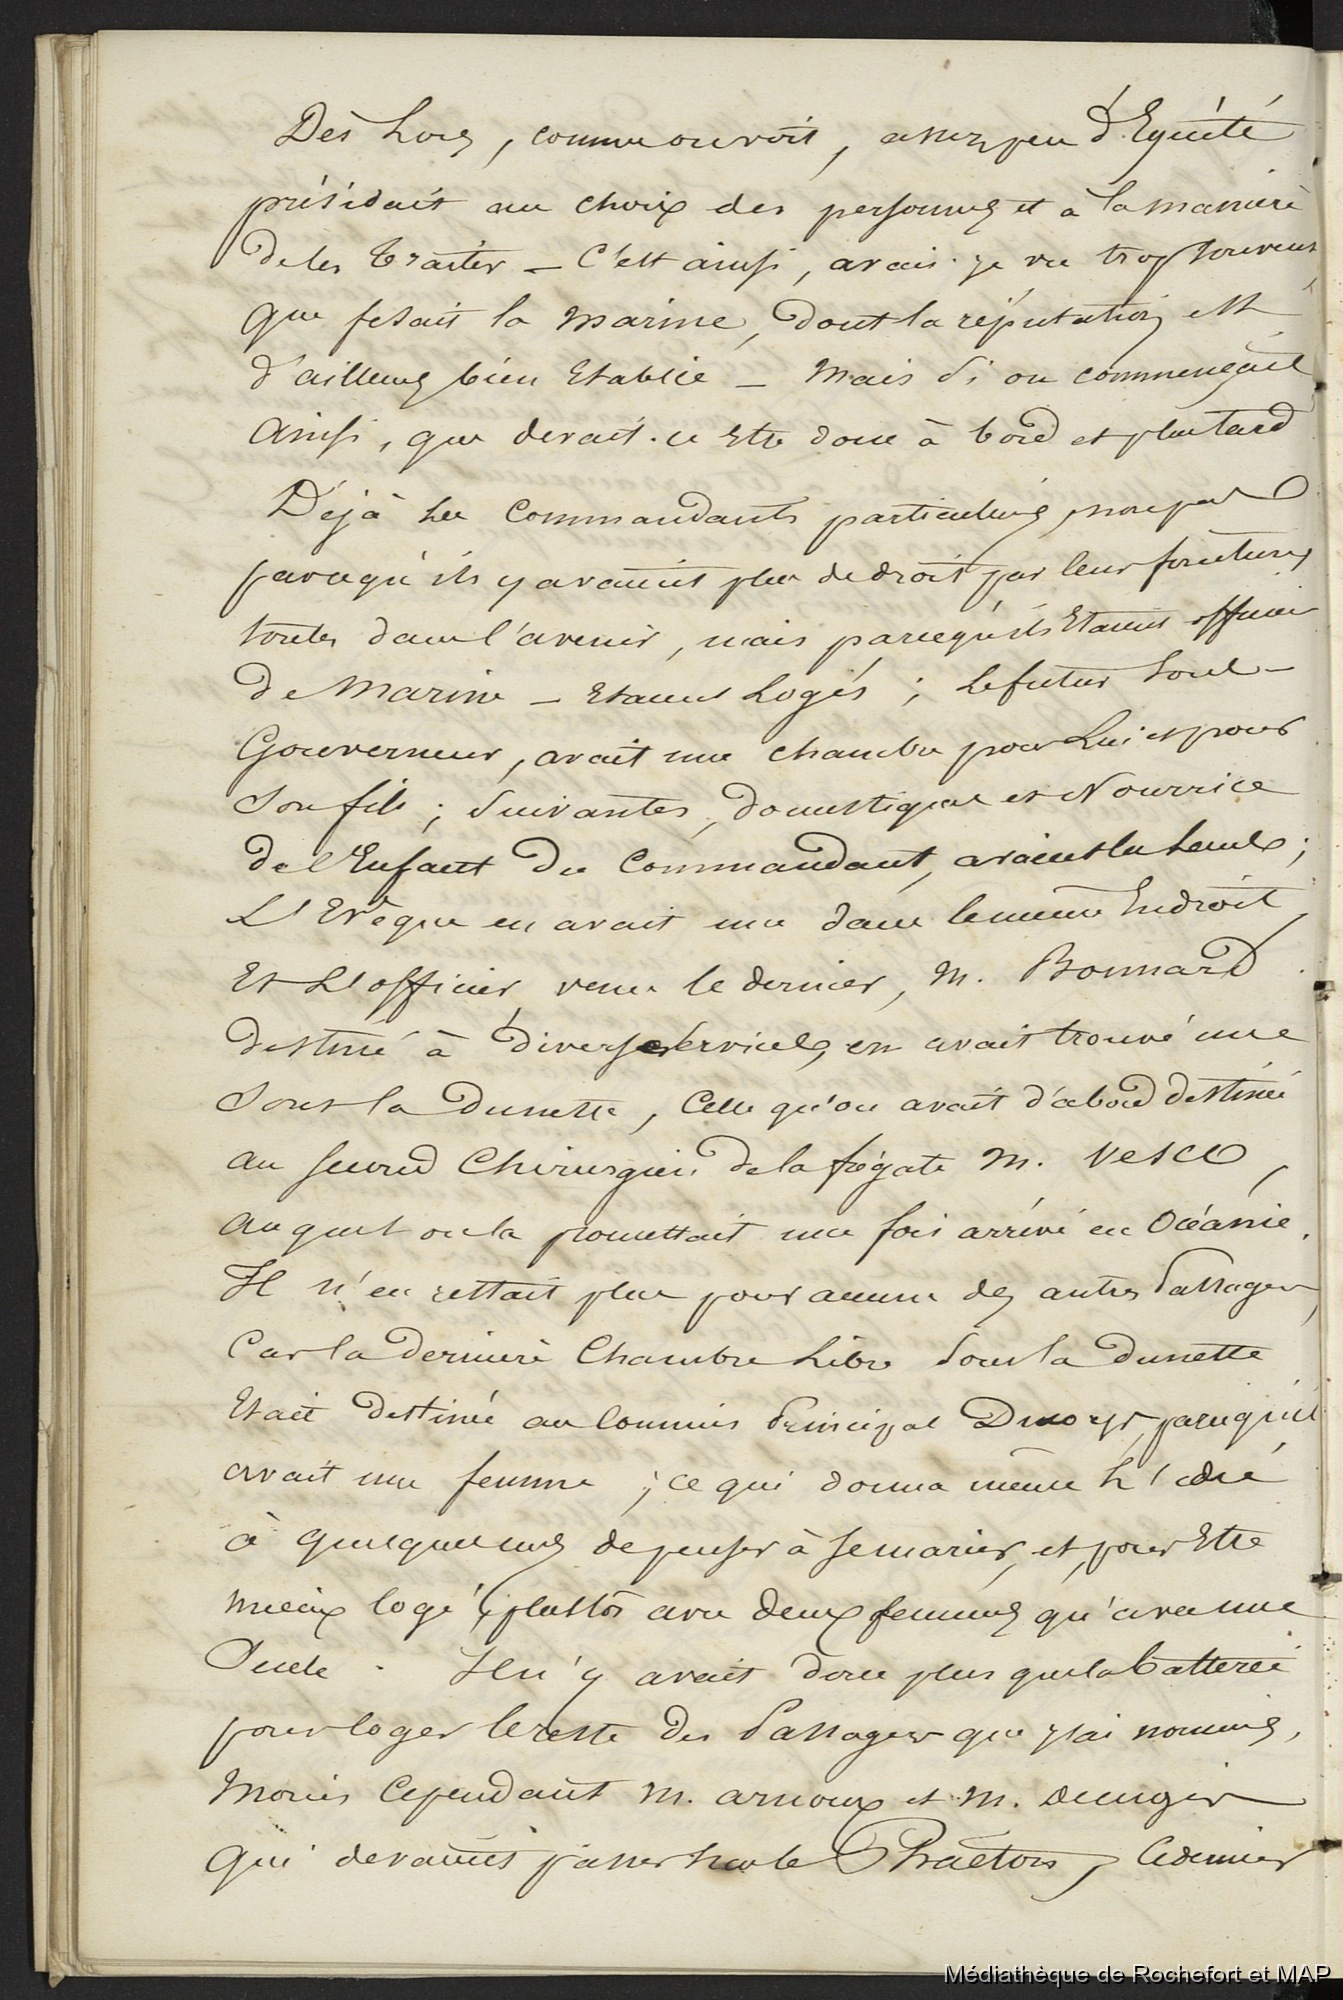 Dès Lors, comme on voit, assez peu d'Equité
présidait au choix des personnes et à la manière
de les traiter — C'est ainsi, avais-je vu trop souvent
que fesait la marine, dont la réputation est
d'ailleurs bien Etablie — Mais si on commençait
ainsi, que devait-ce Etre donc à bord et plus tard
Déjà les Commandants particuliers, non pas
parcequ'ils y avaient plus de droit par leurs fonctions
toutes dans l'avenir, mais parcequ'ils Etaient officiers
de Marine — Etaient Logés ; Le futur Sous-
Gouverneur, avait une chambre pour Lui et pour
Son fils ; Suivantes, domestiques et Nourrice
de l'Enfant du Commandant, avaient la Leur ;
L'Evêque en avait une dans le même Endroit,
Et L'officier venu le dernier, M. Bonnard
destiné à divers Services, en avait trouvé une
Sous la Dunette, Celle qu'on avait d'abord destinée
au second Chirurgien de la frégate M. Vesco,
auquel on la promettait une fois arrivé en Océanie.
Il n'en restait plus pour aucun des autres Passagers,
Car la dernière Chambre Libre Sous la dunette
Etait destinée au Commis Principal parcequ'il
avait une femme ; ce qui donna même L'idée
à quelques uns de penser à se marier, et, pour Etre
mieux logé, plustôt avec deux femmes qu'avec une
Seule. Il n'y avait donc plus que la batterie
pour loger le reste des Passagers que j'ai nommés,
Moins Cependant M. arnoux et M.
qui devaient passer sur le Phaëton, Ce dernier
Médiathèque de Rochefort et MAP